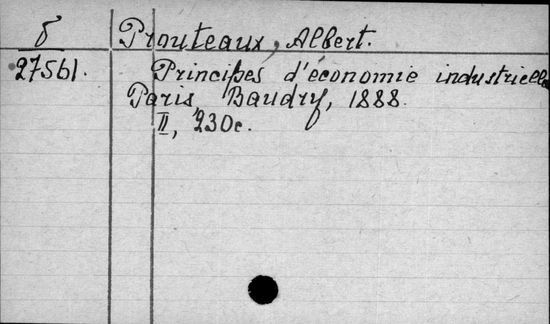 δ Prouteaux, Albert.
27561. Principes d'économie industrielle
Paris Baudry, 1888.
II, 230c.